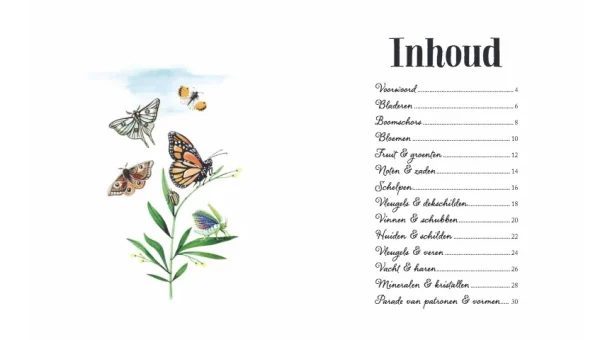 Inhoud
Voorwoord 4
Bladeren 6
Boomschors 8
Bloemen 10
Fruit & groenten 12
Noten & zaden 14
Schelpen 16
Vleugels & dekschilden 18
Vinnen & schubben 20
Huiden & schilden 22
Vleugels & veren 24
Vacht & haren 26
Mineralen & kristallen 28
Parade van patronen & vormen 30